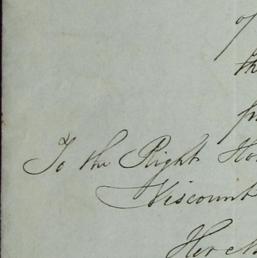 of
the
To the Right Hon
Viscount
Her